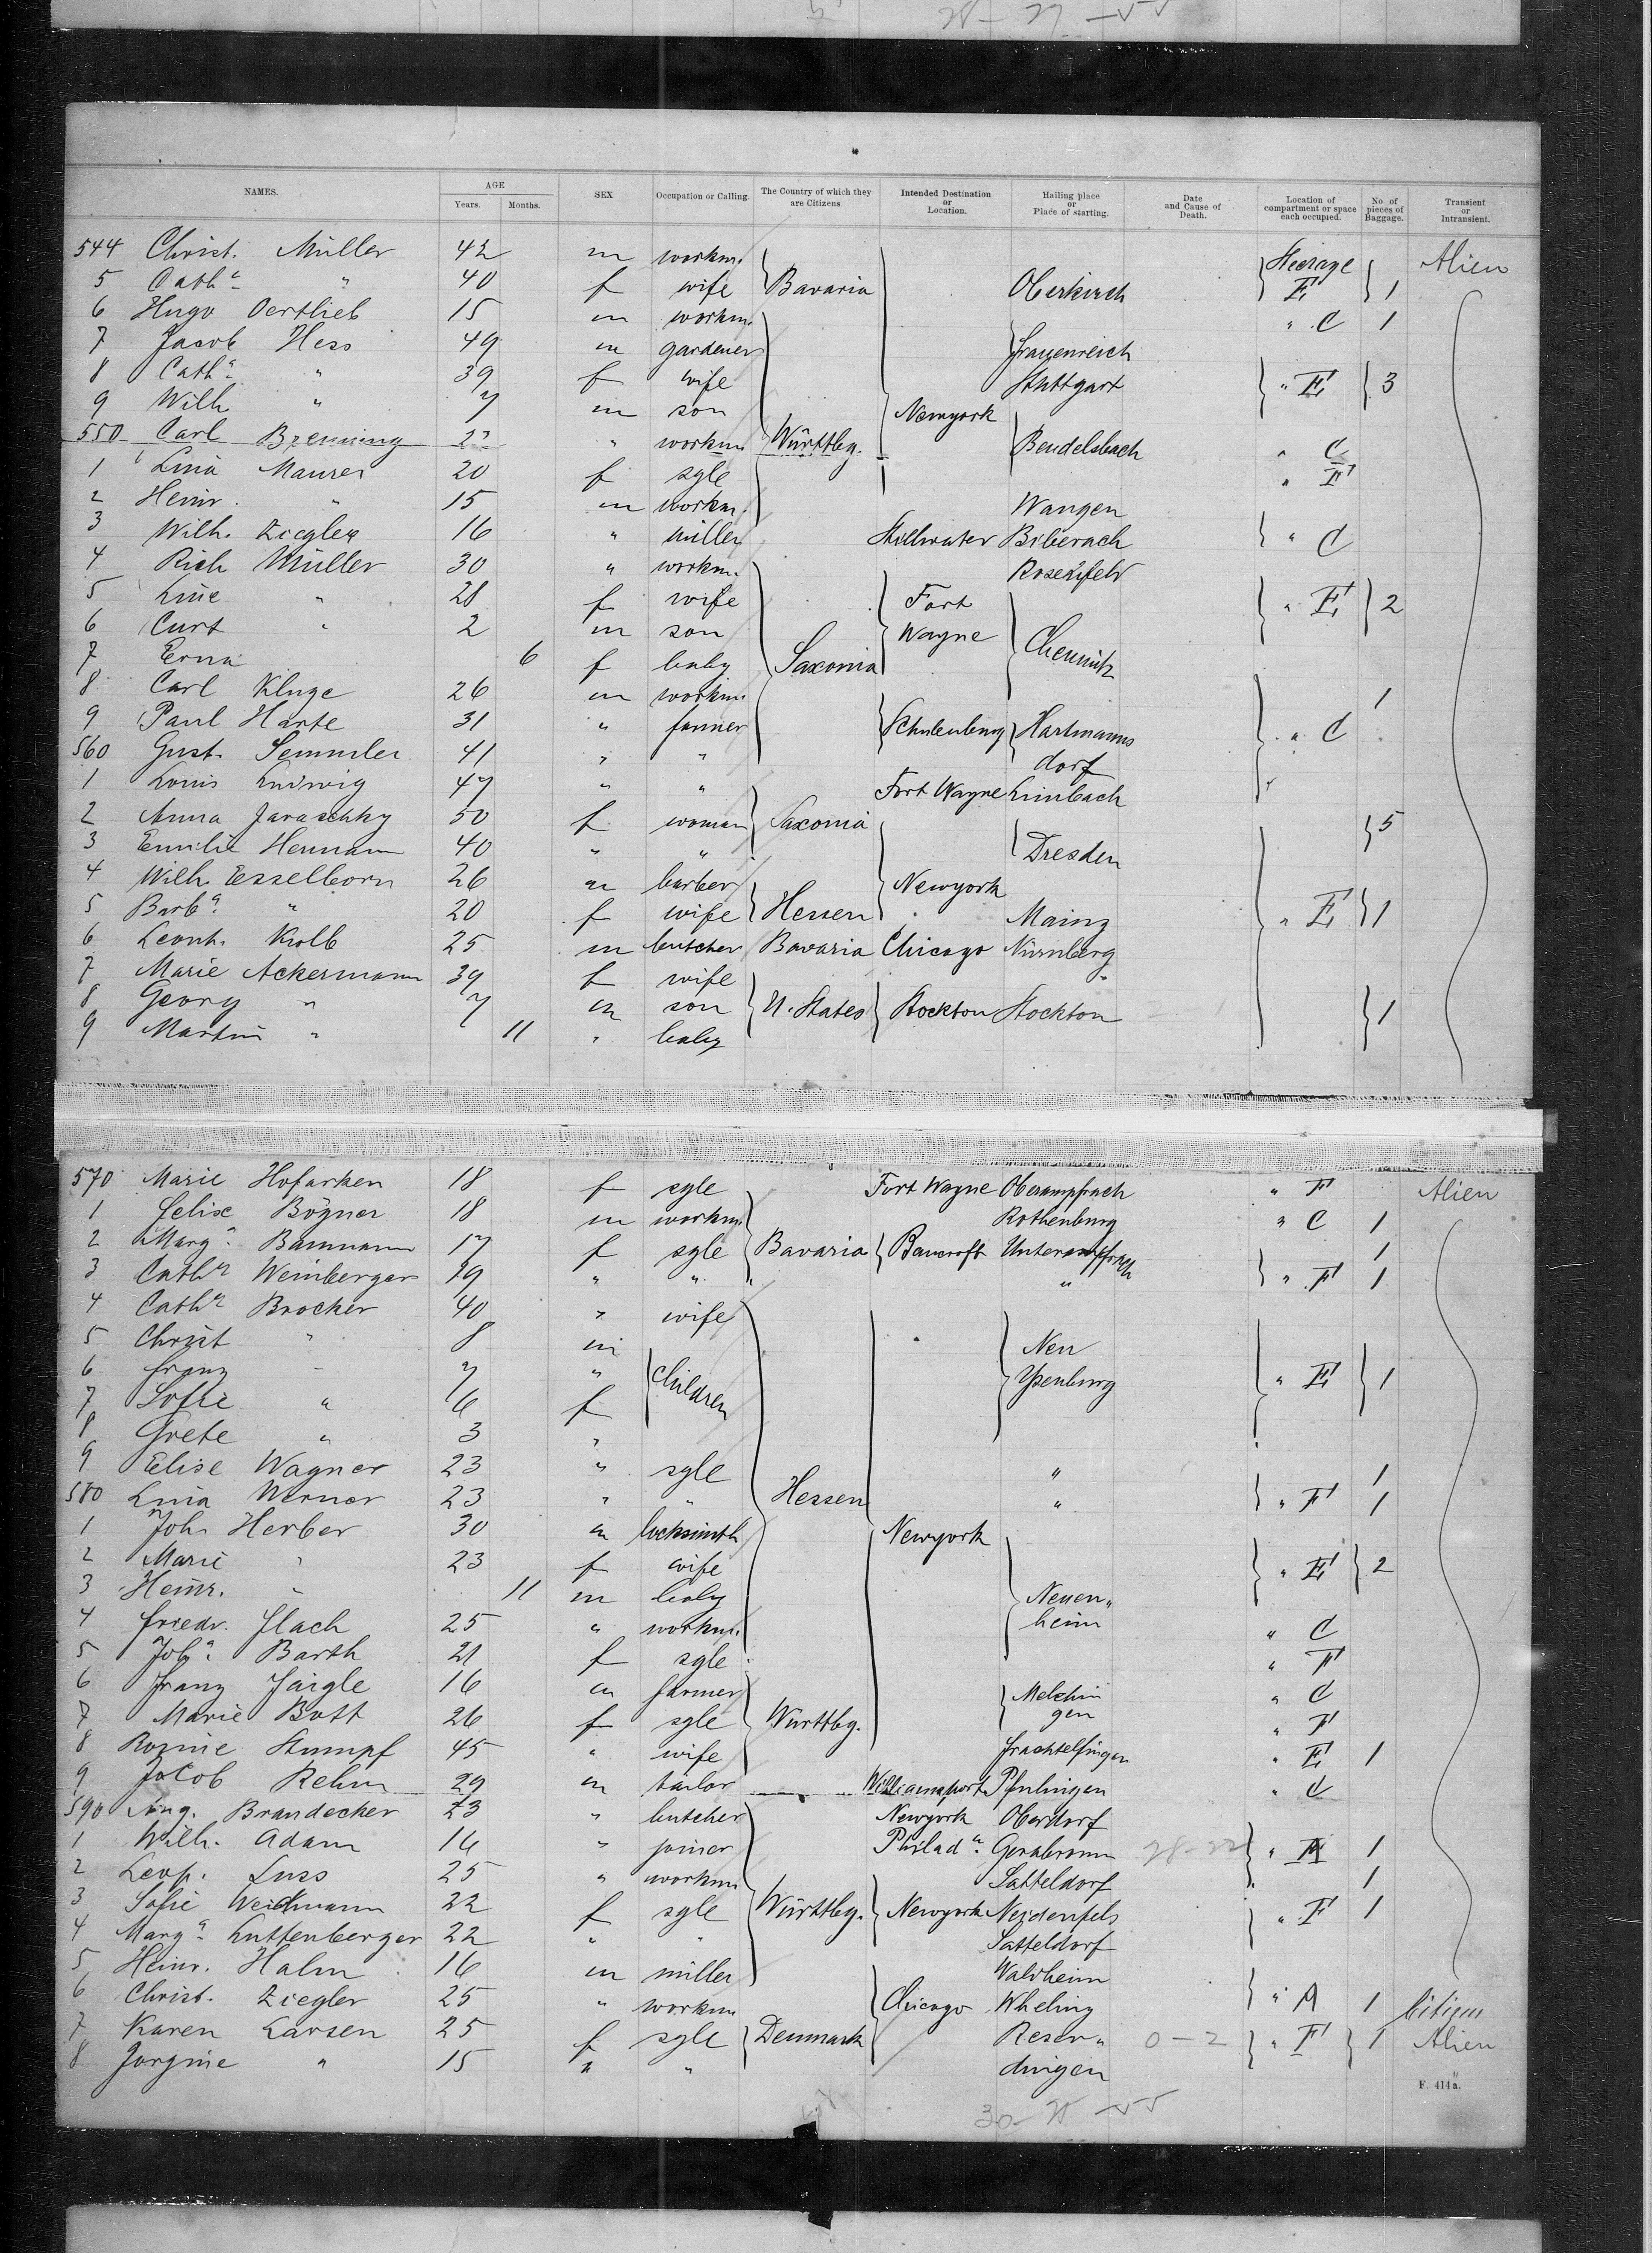 28-27-55
NAMES. AGE Years. Months. SEX Occupation or Calling. The Country of which they are Citizens Intended Destination or Location. Hailing place or Place of starting. Date and Cause of Death. Location of compartment or space each occupied. No. of pieces of Baggage. Transient or Intransient.
544 Christ. Müller 42 m workm. Steerage Alien
5 Catha " 40 f wife Bavaria Oberkirch E 1
6 Hugo Oertlieb 15 m workm. " C 1
7 Jacob Hess 49 m gardener Frauenreich
8 Catha " 39 f wife Stuttgart " E 3
9 Wilh " 7 m son Newyork
550 Carl Brenning " workm. Württbg. Beudelsbach " C
1 Lina Maurer 20 f sgle " F
2 Heinr. " 15 m workm. Wangen
3 Wilh. Ziegler 16 " miller Stillwater Biberach " C
4 Rich Müller 30 " workm. Rosenfeld
5 Line " 28 f wife Fort " E 2
6 Curt " 2 m son Wayne
7 Erna 6 f baby Saxonia Chemnitz
8 Carl Kluge 26 m workm. 1
9 Paul Harte 31 " farmer Schulenburg Hartmanns " C
560 Gust. Semmler 41 " " dorf
1 Louis Ludwig 47 " " Fort Wayne Limbach "
2 Anna Jaraschky 50 f woman Saxonia 5
3 Emilie Hermann 40 " " Dresden
4 Wilh. Esselborn 26 m barber Newyork
5 Barba. " 20 f wife Hessen Mainz " E 1
6 Leonh. Kolb 25 m butcher Bavaria Chicago Nürnberg
7 Marie Ackermann 39 f wife "
8 Georg " 7 m son U. States Stockton Stockton 1
9 Martin " 11 " baby
570 Marie Hofarken 18 f sgle Fort Wayne Oberampfrach " F Alien
1 Felix Bögner 18 m workm. Rothenburg " C 1
2 Marga. Baumann 17 f sgle Bavaria Bancroft Unterampfrach 1
3 Catha Weinberger 19 " " " " F 1
4 Catha Brocker 40 " wife
5 Christ " 8 m Neu
6 Franz " 7 " children Ysenburg " E 1
7 Sofie " 6 f
8 Grete " 3 "
9 Elise Wagner 23 " sgle " 1
580 Lina Werner 23 " " Hessen " " F 1
1 Joh. Herber 30 m locksmith Newyork
2 Marie " 23 f wife " E 2
3 Heinr. " 11 m baby Neuen"
4 Friedr. Flach 25 " workm. heim " C
5 Joha. Barth 21 f sgle " F
6 Franz Faigle 16 m farmer Melchin " C
7 Marie Bott 26 f sgle Württbg. gen " F
8 Rosine Stumpf 45 " wife Trochtelfingen " E 1
9 Jacob Rehm 29 m tailor Williamsport Pfulingen " C
590 Aug. Brandecker 23 " butcher Newyork Oberdorf
1 Wilh. Adam 16 " joiner Philada. Gerabronn 28-22 " A 1
2 Leop. Luss 25 " workm Satteldorf " 1
3 Sofie Weidmann 22 f sgle Württbg. Newyork Neidenfels " F 1
4 Marga Luttenberger 22 " " Satteldorf
5 Heinr. Halm 16 m miller Waldheim
6 Christ. Ziegler 25 " workm Chicago Wheling " A 1 Citizen
7 Karen Larsen 25 f sgle Denmark Reser" 0-2 " F 1 Alien
8 Jorgine " 15 " " dingen
F. 414a.
30-25-55